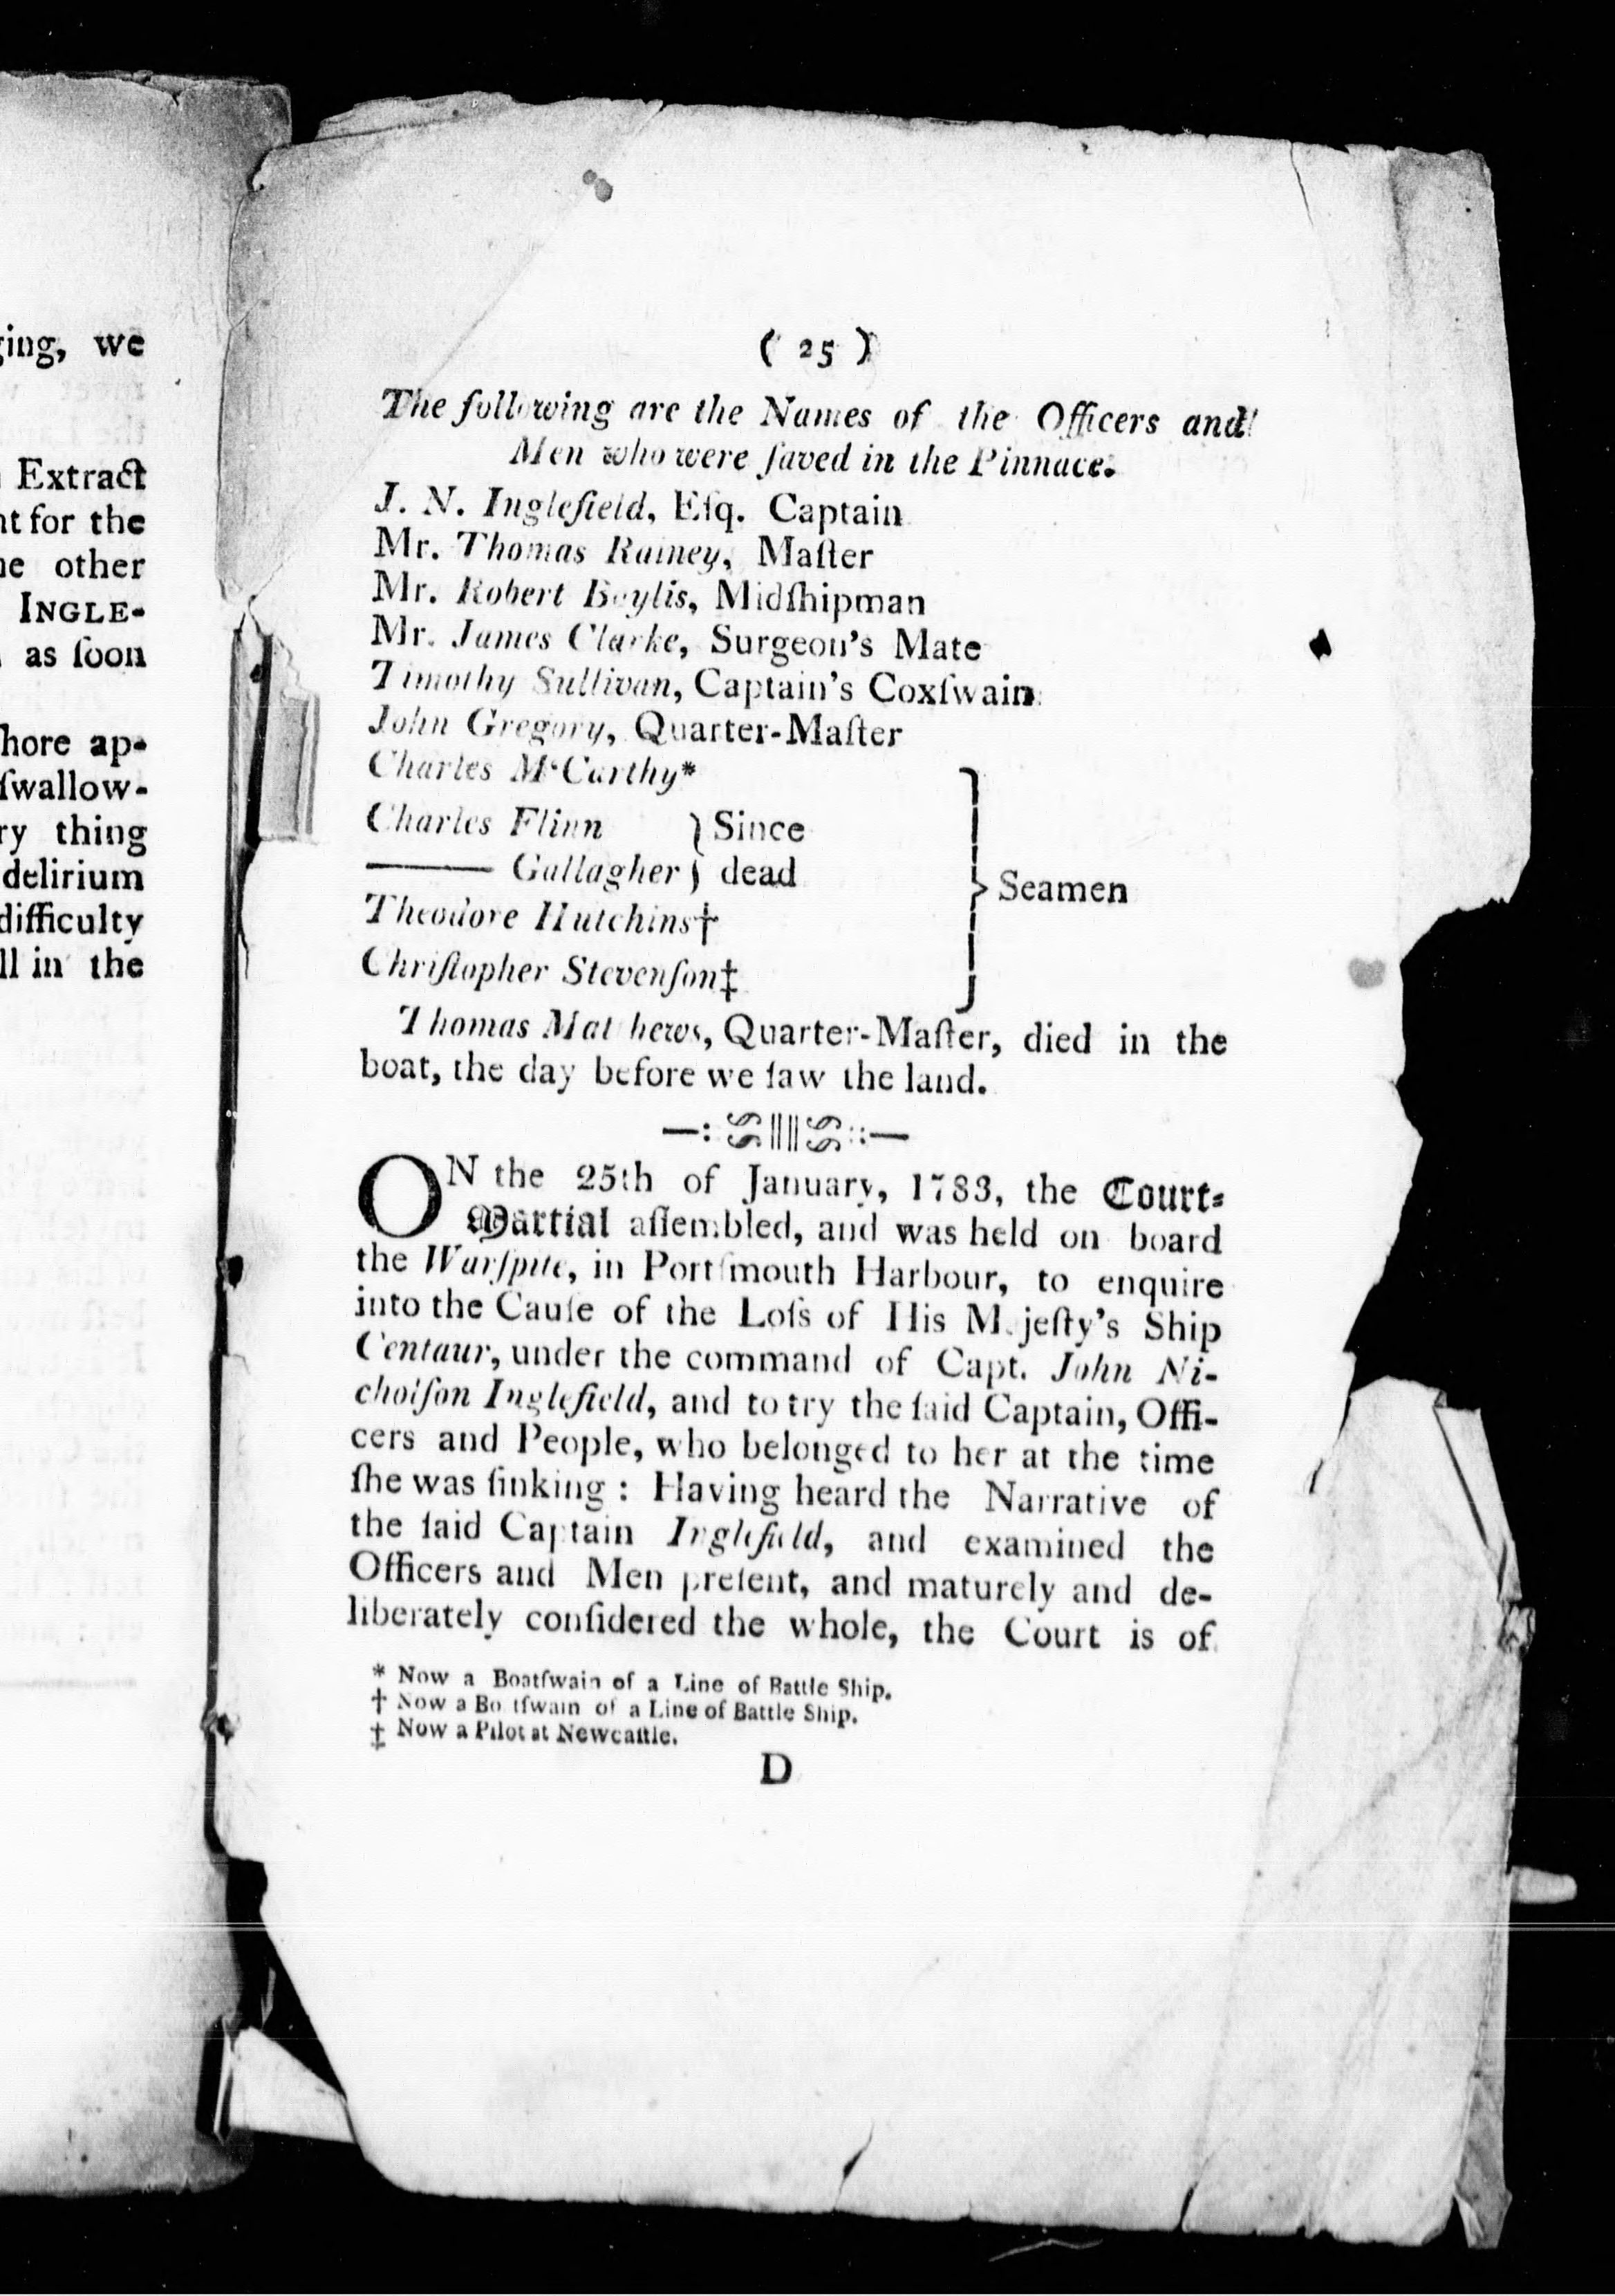 ging, we
Extract
nt for the
he other
INGLE-
as ſoon
ſhore ap-
ſwallow-
ry thing
delirium
difficulty
ll in the
( 25 )
The following are the Names of the Officers and
Men who were ſaved in the Pinnace.
J. N. Inglefield, Eſq. Captain
Mr. Thomas Rainey, Maſter
Mr. Robert Baylis, Midſhipman
Mr. James Clarke, Surgeon's Mate
Timothy Sullivan, Captain's Coxſwain
John Gregory, Quarter-Maſter
Charles M‘Carthy*
Charles Flinn } Since
——— Gallagher } dead
} Seamen
Theodore Hutchins†
Chriſtopher Stevenſon‡
Thomas Matthews, Quarter-Maſter, died in the
boat, the day before we ſaw the land.
ON the 25th of January, 1783, the Court-
Martial aſſembled, and was held on board
the Warſpite, in Portſmouth Harbour, to enquire
into the Cauſe of the Loſs of His Majeſty's Ship
Centaur, under the command of Capt. John Ni-
cholſon Inglefield, and to try the ſaid Captain, Offi-
cers and People, who belonged to her at the time
ſhe was ſinking : Having heard the Narrative of
the ſaid Captain Inglefield, and examined the
Officers and Men preſent, and maturely and de-
liberately conſidered the whole, the Court is of
* Now a Boatſwain of a Line of Battle Ship.
† Now a Boatſwain of a Line of Battle Ship.
‡ Now a Pilot at Newcaſtle.
D